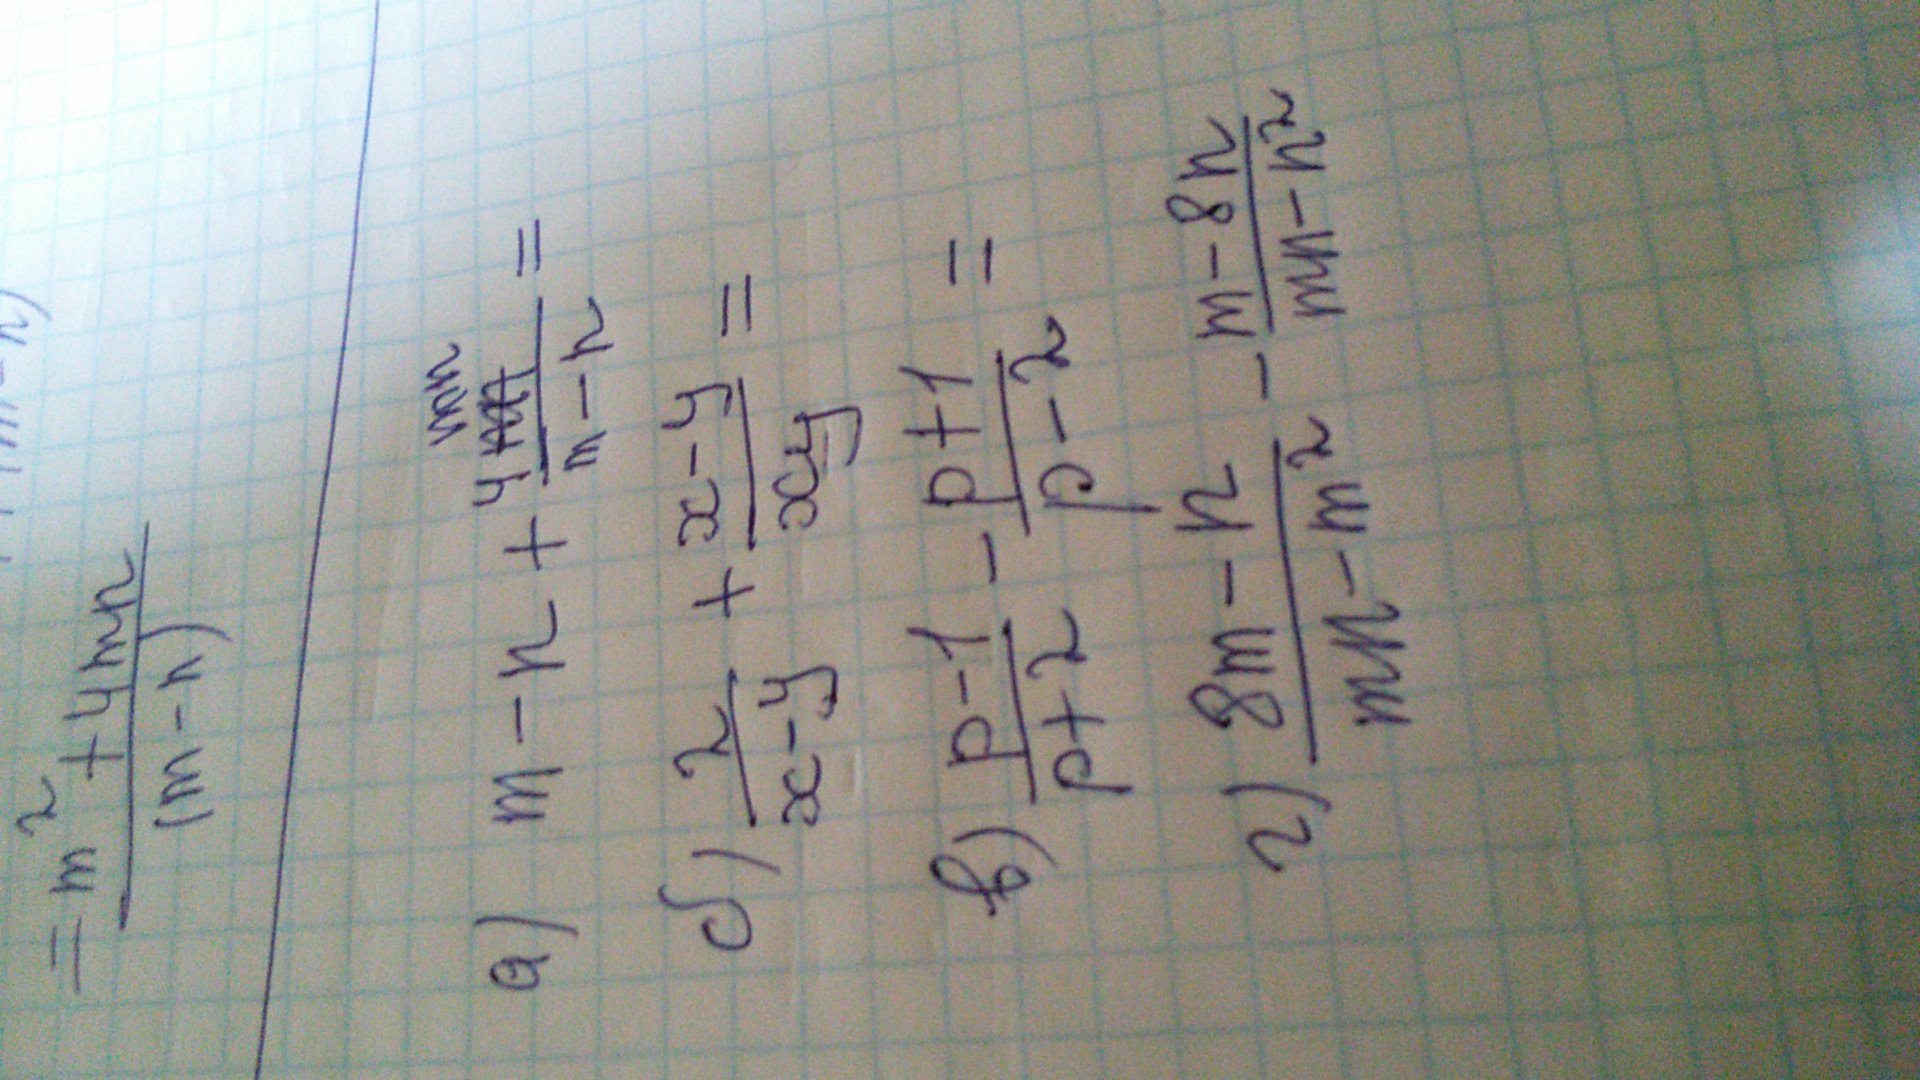 = m² + 4mn
(m - n)
а) m - n + 4mn/(m - n) =
б) 2/(x - y) + (x - y)/(xy) =
в) (p - 1)/(p + 2) - (p + 1)/(p - 2) =
г) (8m - n)/(mn - m²) - (m - 8n)/(mn - n²)